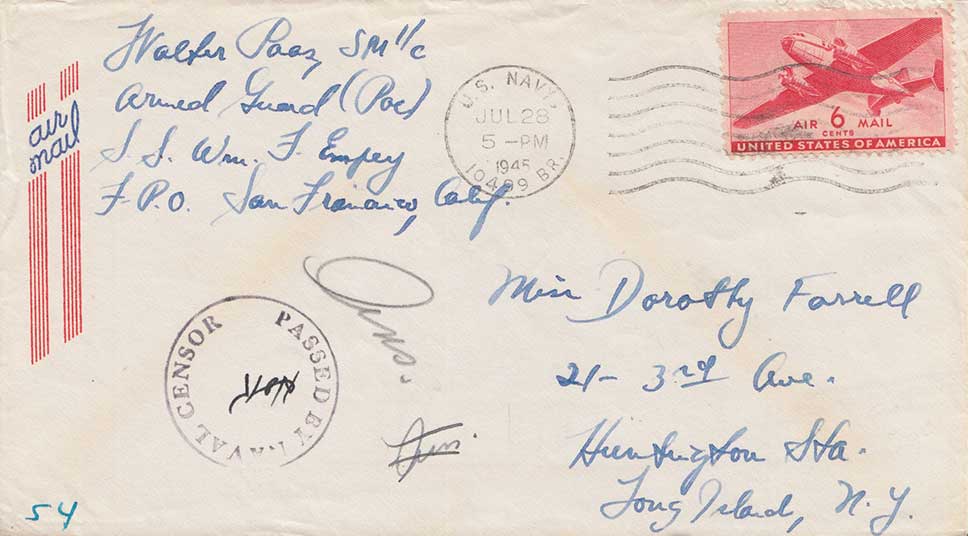 Walter Paaz SM 1/c
Armed Guard (Pac)
S. S. Wm. F. Empey
F. P. O. San Francisco, Calif.
air
mail
U.S. NAVY,
JUL 28
5 -PM
1945
10499 BR.
AIR 6 MAIL
CENTS
UNITED STATES OF AMERICA
Miss Dorothy Farrell
21- 3rd Ave.
Huntington Sta.
Long Island, N. Y.
PASSED BY NAVAL CENSOR
Ans.
54